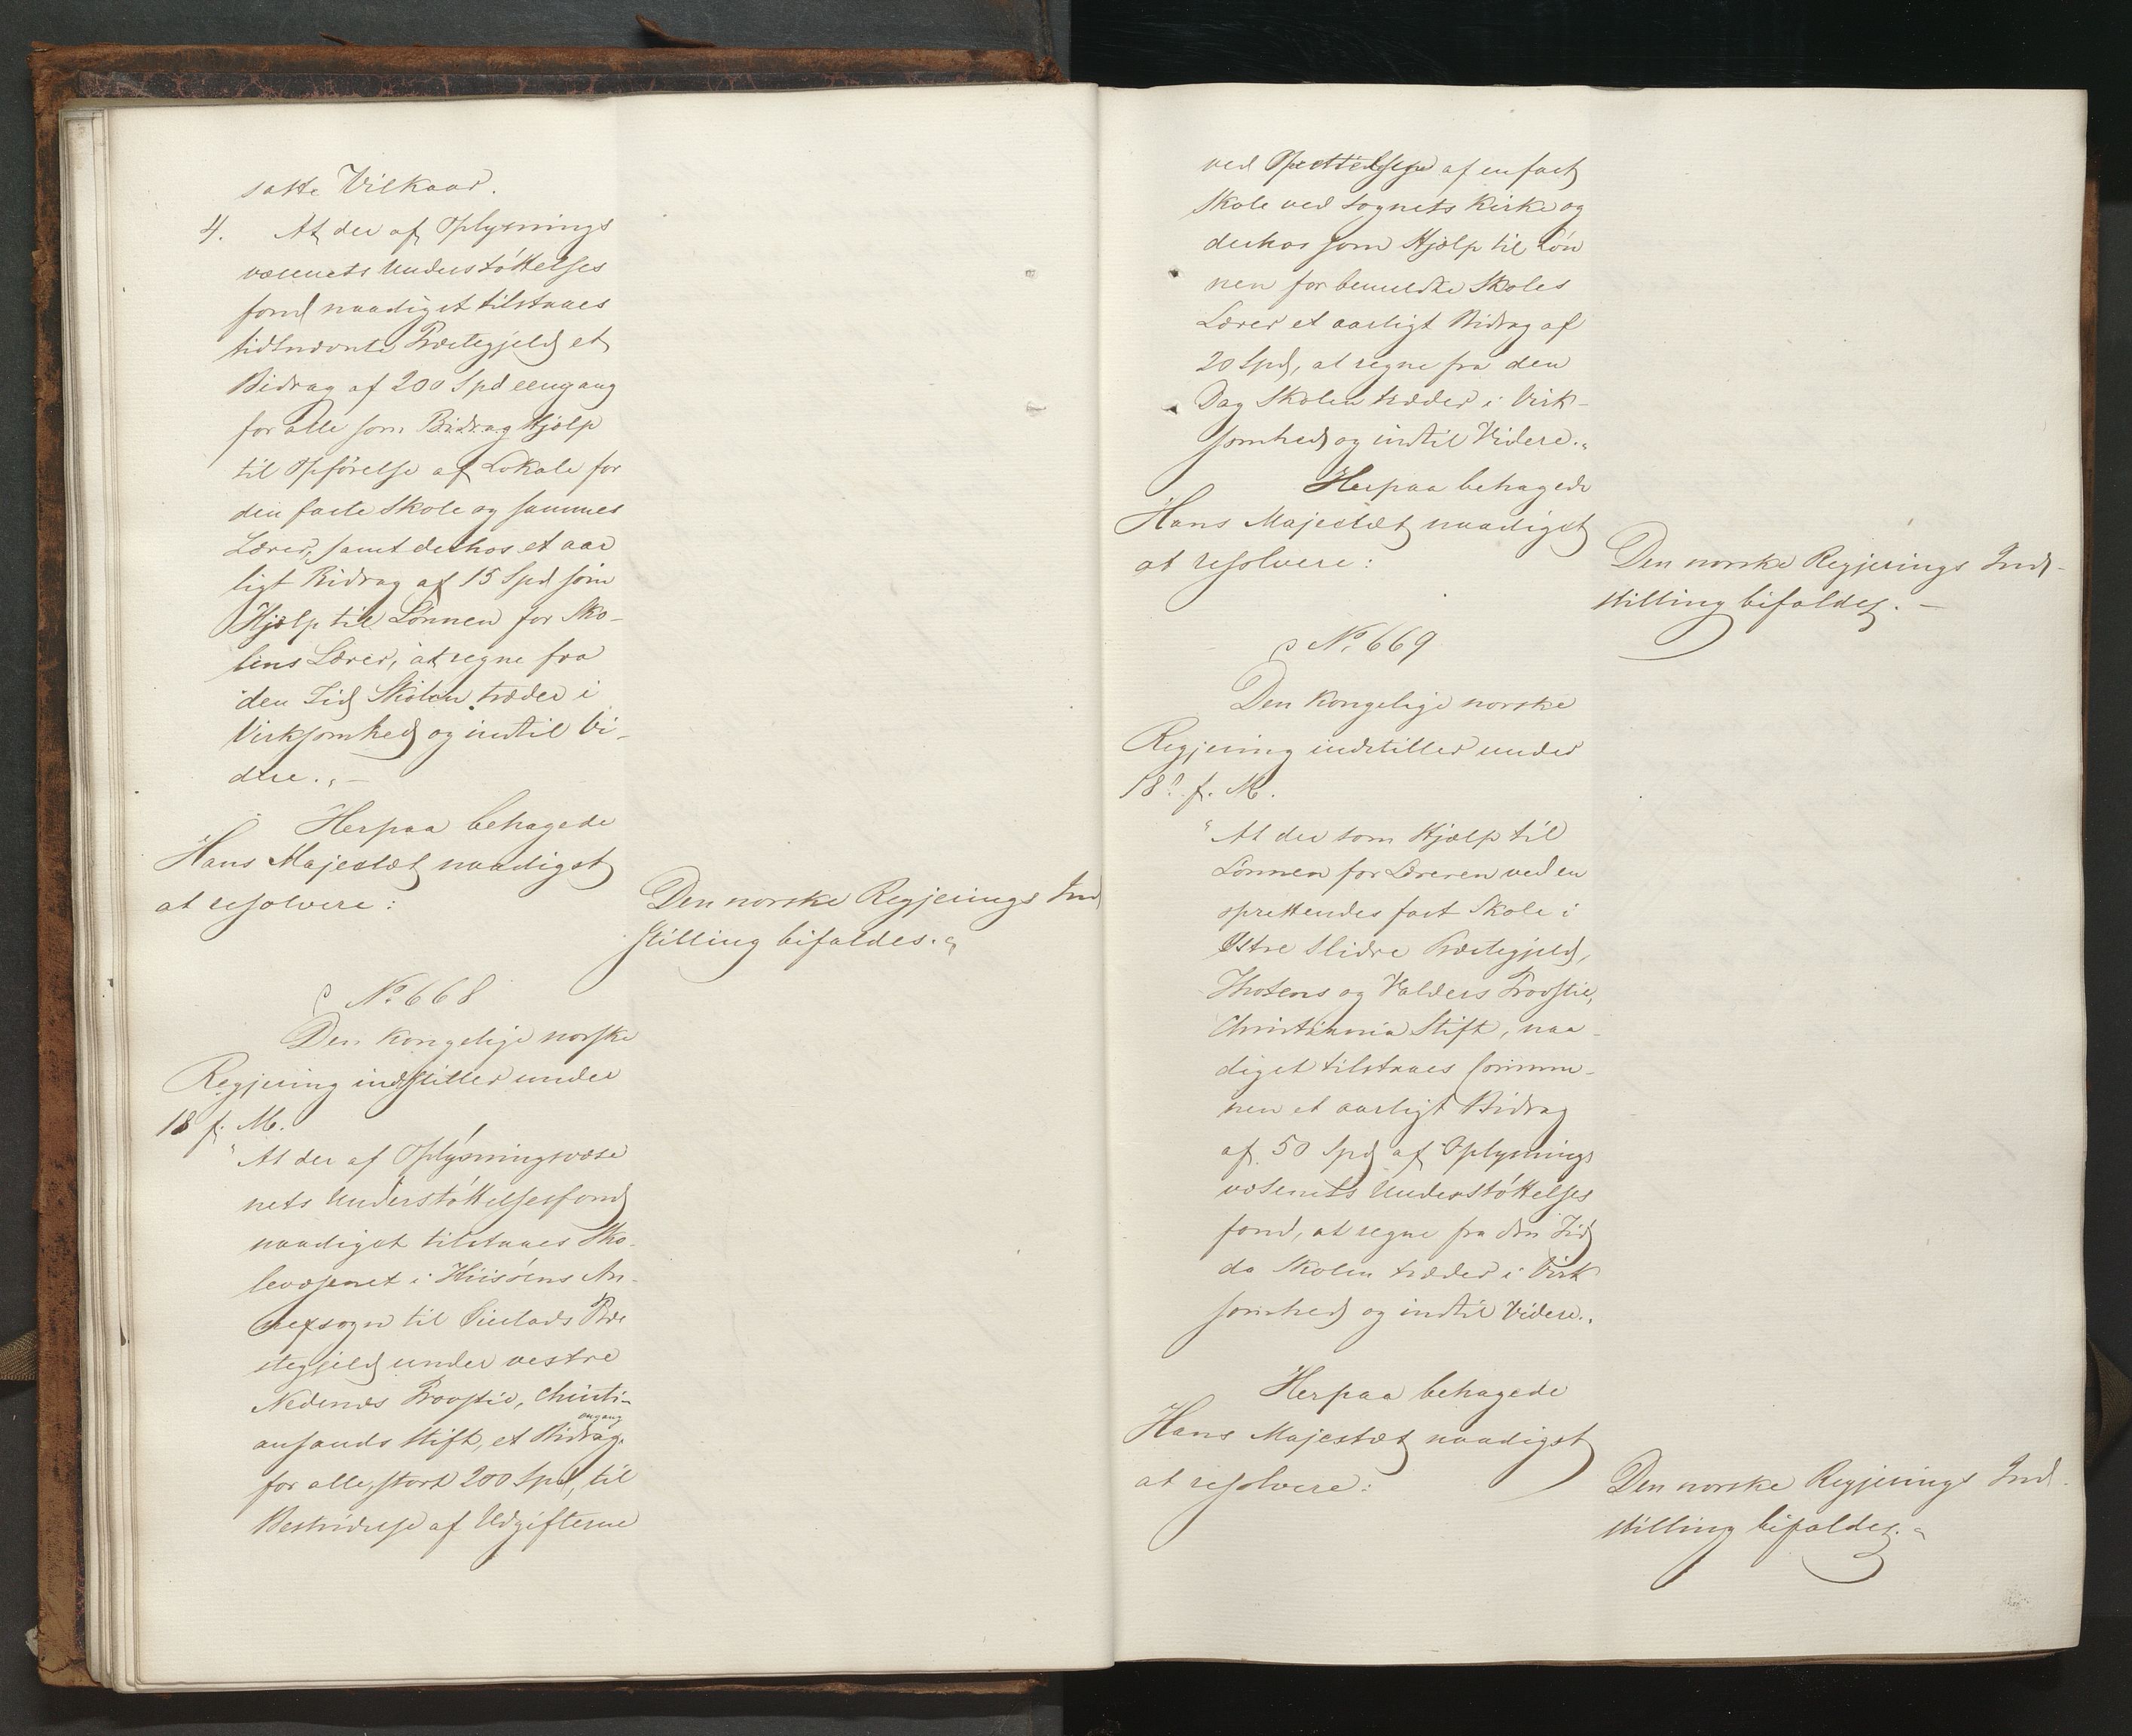 satte Vilkaar.
4. At der af Oplysnings
væsenets Understøttelses
fond naadigst tilstaaes
sidstnævnte Præstegjeld et
Bidrag af 200 Spd eengang
for alle som Bidrag Hjælp
til Opførelse af Lokale for
den faste Skole og sammes
Lærer, samt derhos et aar
ligt Bidrag af 15 Spd som
Hjælp til Lønnen for Sko-
lens Lærer, at regne fra
den Tid Skolen træder i
Virksomhed og indtil Vi-
dere." –
Herpaa behagede
Hans Majestæt naadigst
at resolvere:
Den norske Regjerings Ind
stilling bifaldes."
No 668
Den Kongelige norske
Regjering indstiller under
18 f. M.
"At der af Oplysningsvæse
nets Understøttelsesfond
naadigst tilstaaes Sko-
levæsenet i Hiisøens An-
nexsogn til Øiestads Præ
stegjeld under vestre
Nedenæs Provstie, Christi-
ansands Stift, et Bidrag engang
for alle, stort 200 Spd, til
Bestridelse af Udgifterne
ved Oprettelsen af en fast
Skole ved Sognets Kirke og
derhos som Hjælp til Løn
nen for bemeldte Skoles
Lærer et aarligt Bidrag af
20 Spd, at regne fra den
Dag Skolen træder i Virk-
somhed og indtil Videre."
Herpaa behagede
Hans Majestæt naadigst
at resolvere:
Den norske Regjerings Ind-
stilling bifaldes. –
No 669
Den Kongelige norske
Regjering indstiller under
18de f. M.
"At der som Hjælp til
Lønnen for Læreren ved en
oprettendes fast Skole i
Østre Slidre Præstegjeld,
Thotens og Valders Provstie,
Christiania Stift, naa-
digst tilstaaes Commu-
nen et aarligt Bidrag
af 50 Spd af Oplysnings
væsenets Understøttelses
fond, at regne fra den Tid
da Skolen træder i Virk
somhed og indtil Videre."
Herpaa behagede
Hans Majestæt naadigst
at resolvere:
Den norske Regjerings Ind-
stilling bifaldes."